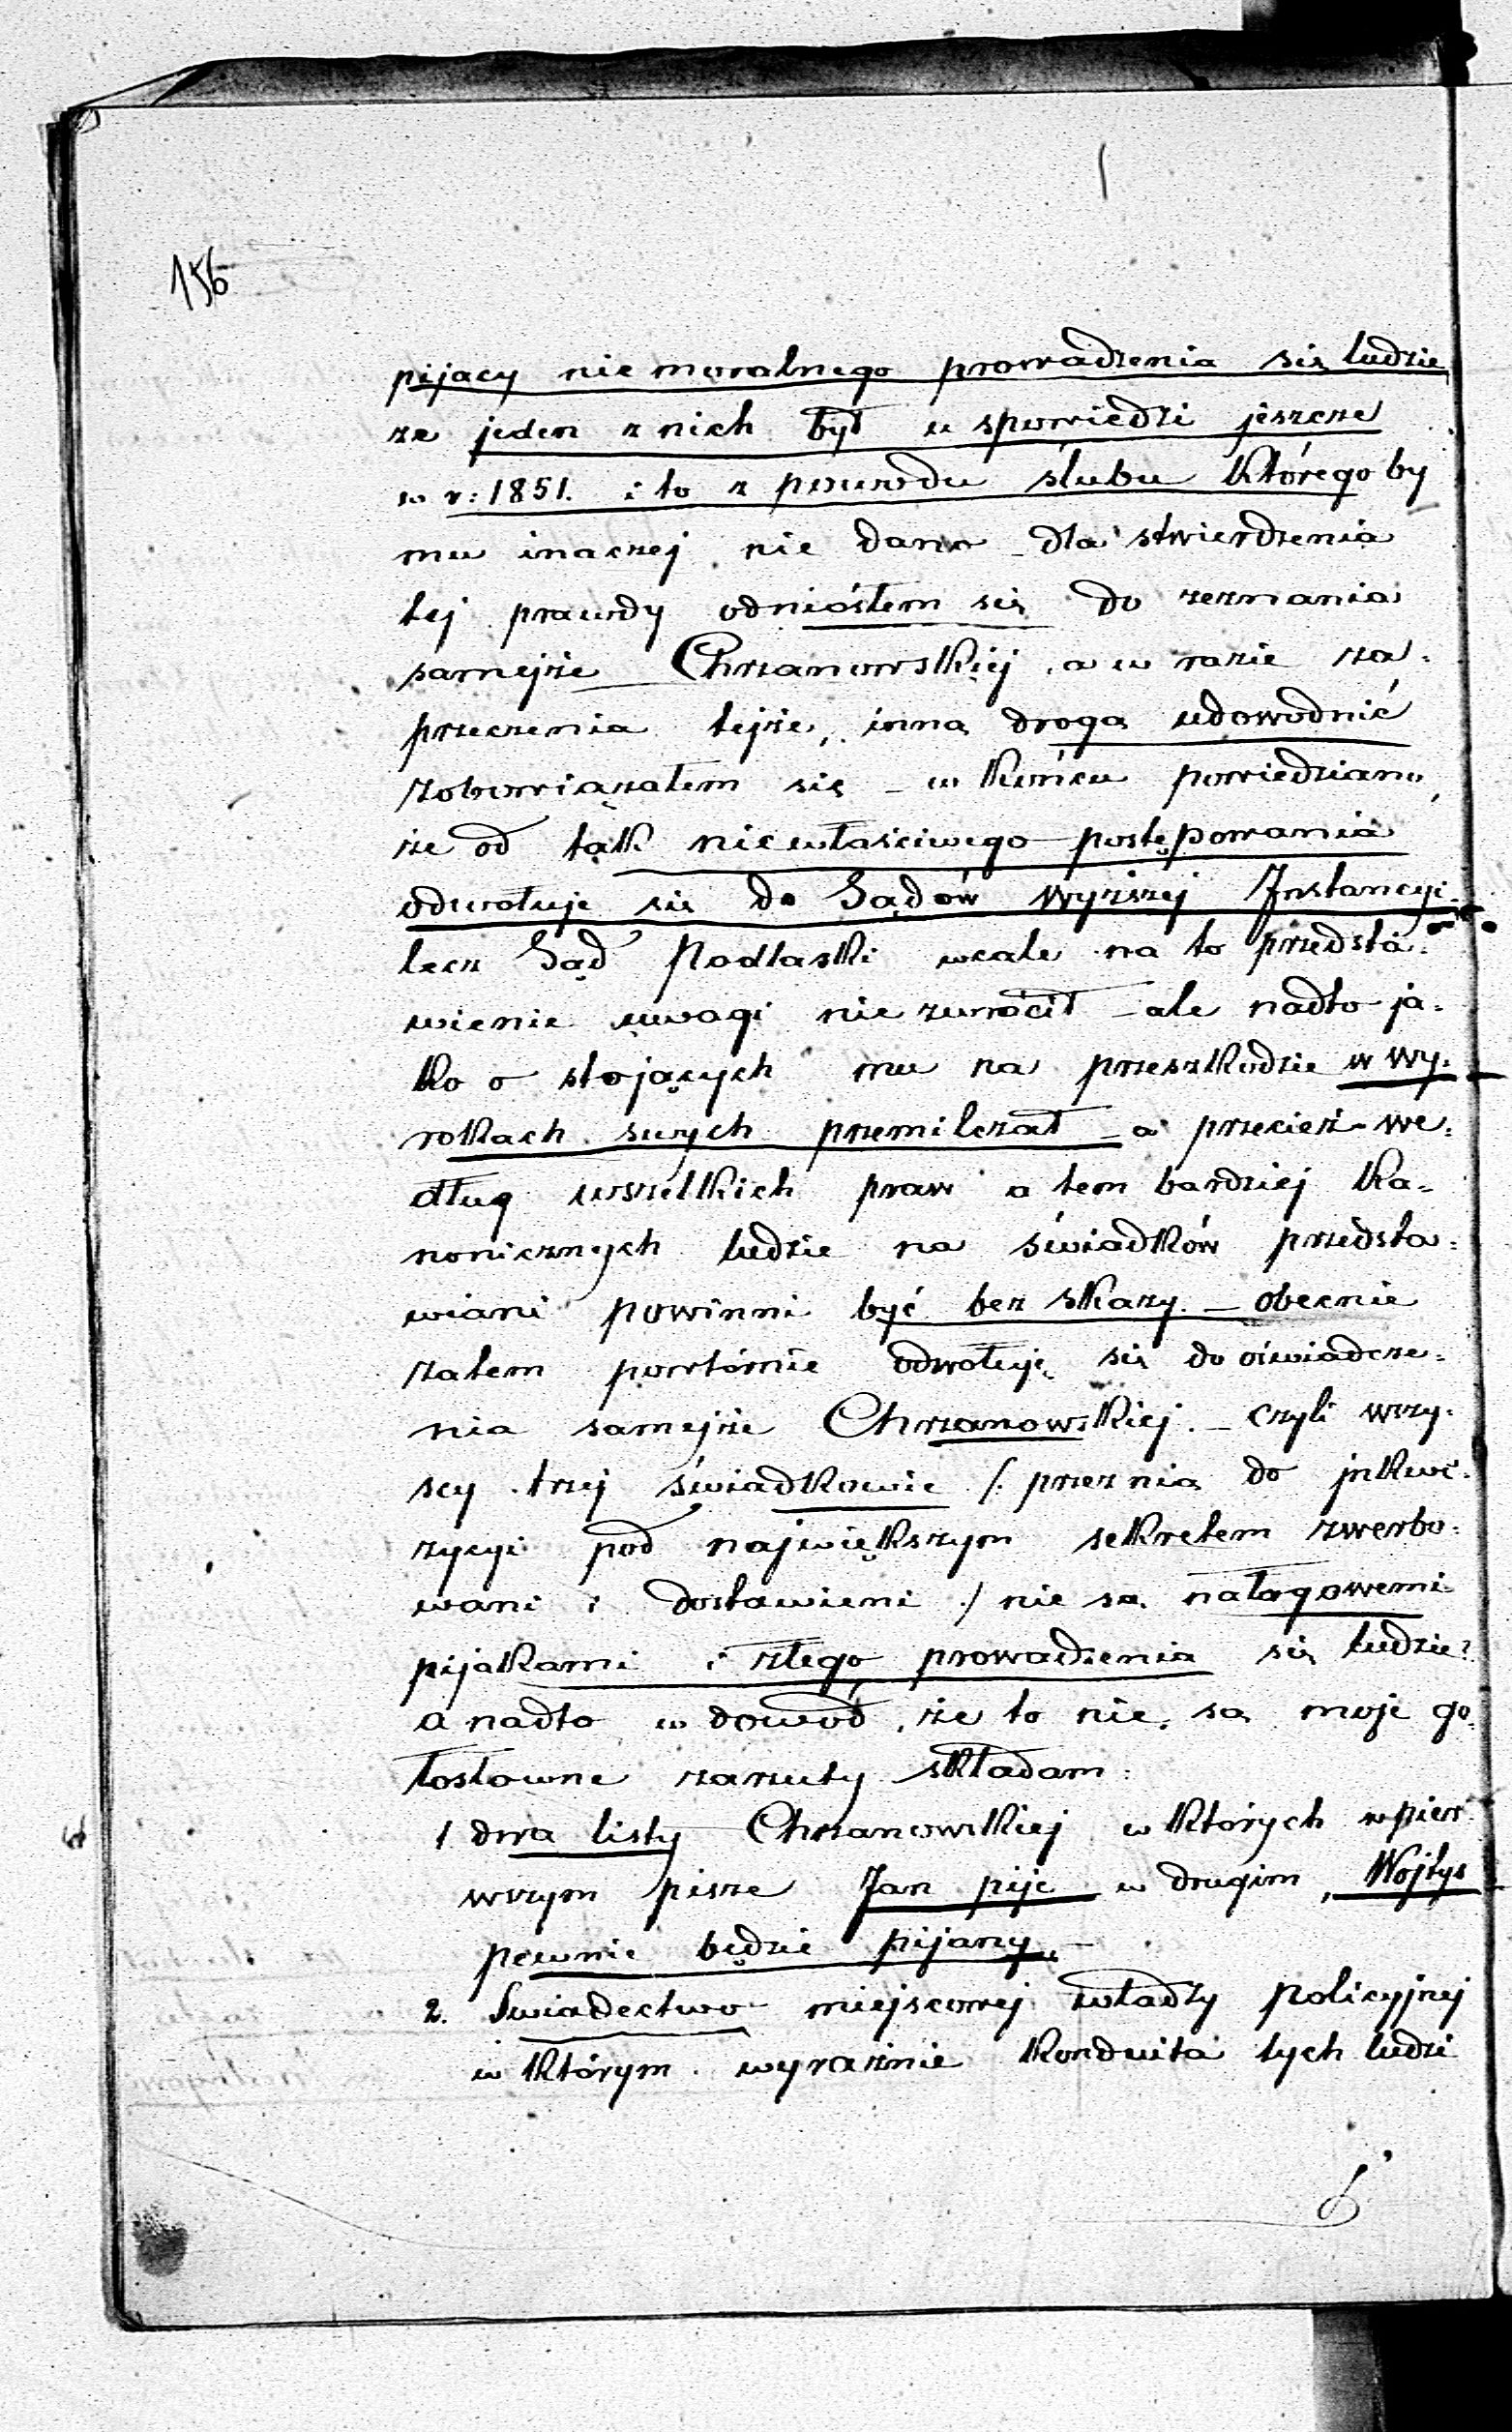 156
pijacy niemoralnego prowadzenia się ludzie
że jeden z nich był u spowiedzi jeszcze
w r: 1851. i to z powodu ślubu którego by
mu inaczej nie dano – dla stwierdzenia
tej prawdy odniósłem się do zeznania
samejże Chrzanowskiej, a w razie za=
przeczenia tejże, inną drogą udowodnić
zobowiązałem się – w końcu powiedziano,
że od tak niewłaściwego postępowania
odwołuję się do Sądów wyższej Instancyi
lecz Sąd Podlaski wcale na to przedsta=
wienie uwagi nie zwrócił – ale nadto ja=
ko o stojących mu na przeszkodzie w wy=
rokach swych przemilczał – a przecież we=
dług wszelkich praw a tem bardziej ka=
nonicznych ludzie na świadków przedsta=
wiani powinni być bez skazy. – obecnie
zatem powtórnie odwołuję się do oświadcze=
nia samejże Chrzanowskiej. – czyli wszy=
scy trzej świadkowie /: przez nią do inkwi=
zycyi pod największym sekretem zwerbo=
wani i dostawieni :/ nie są nałogowemi
pijakami i złego prowadzenia się ludzie?
a nadto w dowód, że to nie są moje go=
łosłowne zarzuty składam:
1 dwa listy Chrzanowskiej w których w pier=
wszym pisze Jan pije w drugim, Wojtys
pewnie będzie pijany. –
2. Swiadectwo miejscowej władzy policyjnej
w którym wyraźnie konduita tych ludzi